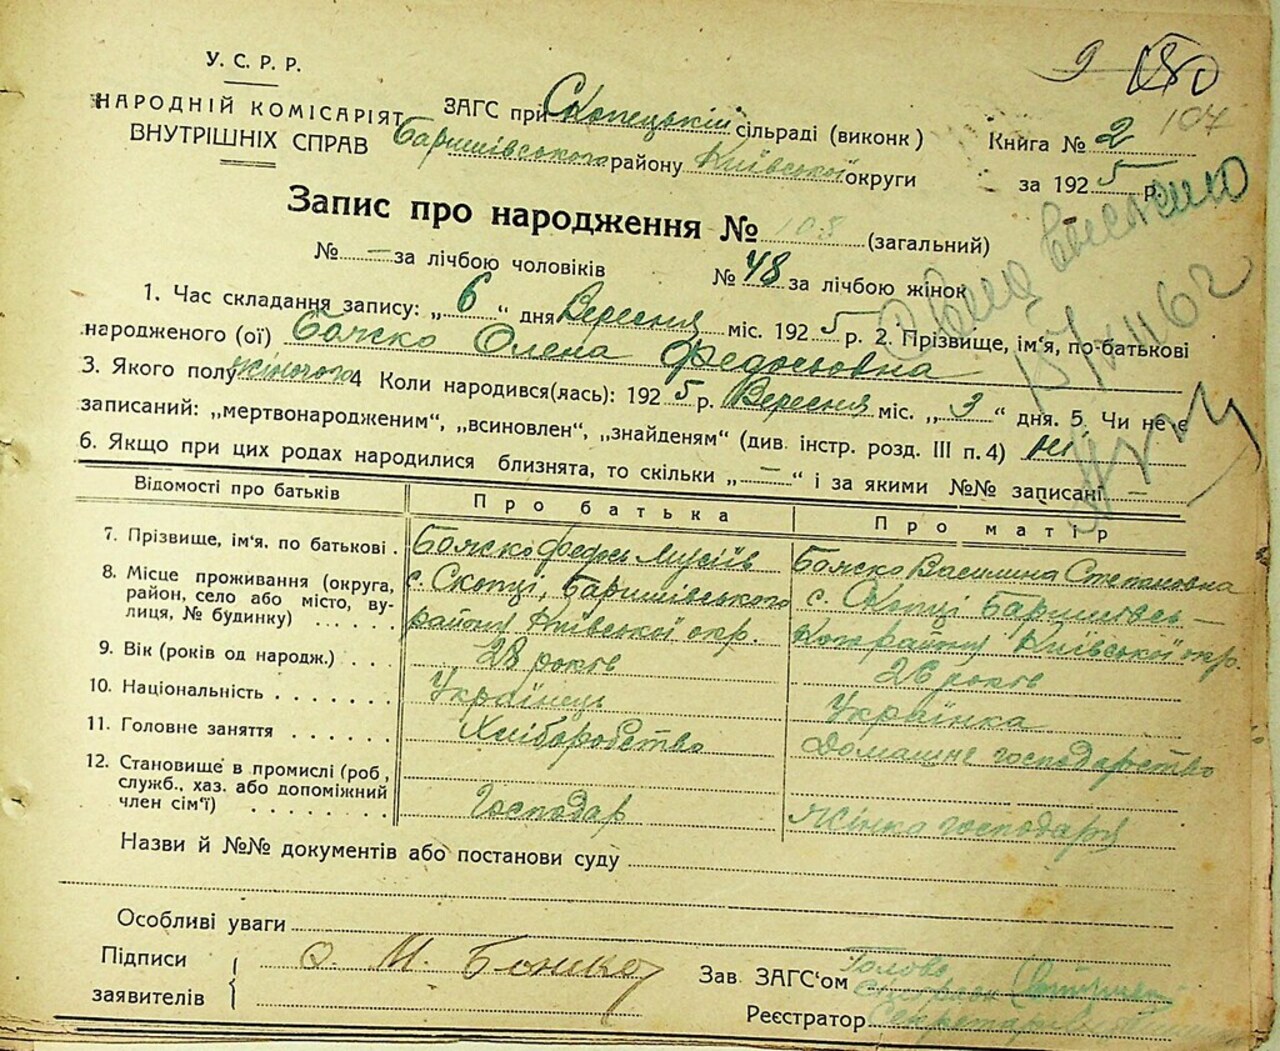 9 180
104
У. С. Р. Р.
НАРОДНІЙ КОМІСАРІЯТ
ВНУТРІШНІХ СПРАВ
ЗАГС при Скопецькій сільраді (виконк)
Баришівського району Київської округи
Книга № 2
за 1925 р.
Запис про народження № 108 (загальний)
№ — за лічбою чоловіків № 48 за лічбою жінок
1. Час складання запису: „ 6 “ дня Вересня міс. 1925 р. 2. Прізвище, ім'я, по-батькові
народженого (ої) Божко Олена Федосьовна
3. Якого полу жіночого 4 Коли народився(лась): 1925 р. Вересня міс. „ 3 “ дня. 5. Чи не є
записаний: „мертвонародженим“, „всиновлен“, „знайденям“ (див. інстр. розд. III п. 4) Ні
6. Якщо при цих родах народилися близнята, то скільки „ — “ і за якими №№ записані —
Відомості про батьків Про батька Про матір
7. Прізвище, ім'я, по батькові . Божко Федось Мусіїв Божко Василина Степановна
8. Місце проживання (округа, район, село або місто, вулиця, № будинку) . . . . . с. Скопці, Баришівського с. Скопці Баришівсь-
району Київської окр. кого району Київської окр.
9. Вік (років од народж.) . . . 28 років 26 років
10. Національність . . . . . . . Українець Українка
11. Головне заняття . . . . . . Хліборобство Домашнє господарство
12. Становище в промислі (роб, служб., хаз. або допоміжний член сім'ї) . . . . . . . . Господар Жінка господаря
Назви й №№ документів або постанови суду
Особливі уваги
Підписи
заявителів
Ф. М. Божко
Зав. ЗАГС'ом Голова
сільради
Реєстратор Секретар